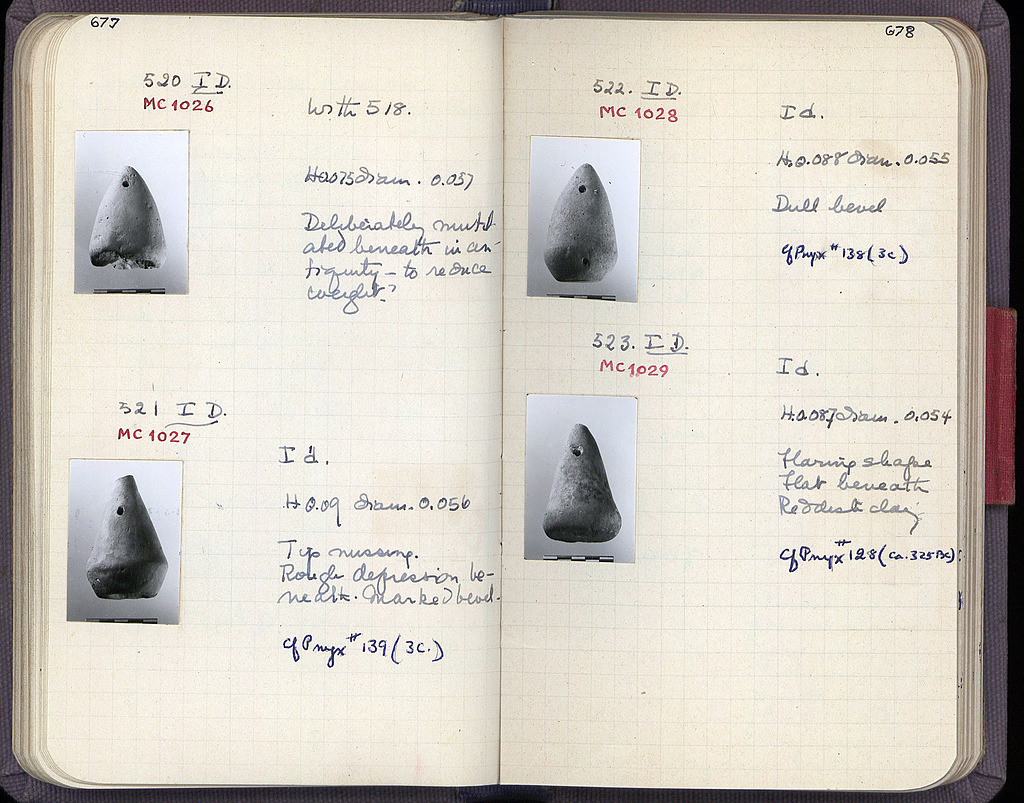 677
520 I D.
MC 1026
With 518.
H 0.075 diam. 0.057
Deliberately mutil-
ated beneath in an-
tiquity – to reduce
weight?
521 I D.
MC 1027
Id.
H 0.09 diam. 0.056
Tip missing.
Rough depression be-
neath. Marked bevel.
cf Pnyx # 139 (3c.)
678
522. I D.
MC 1028
Id.
H. 0.088 diam. 0.055
Dull bevel
cf Pnyx # 138 (3c)
523. I D.
MC 1029
Id.
H. 0.087 diam. 0.054
Flaring shape
Flat beneath
Reddish clay
cf Pnyx # 128 (ca. 325 BC)